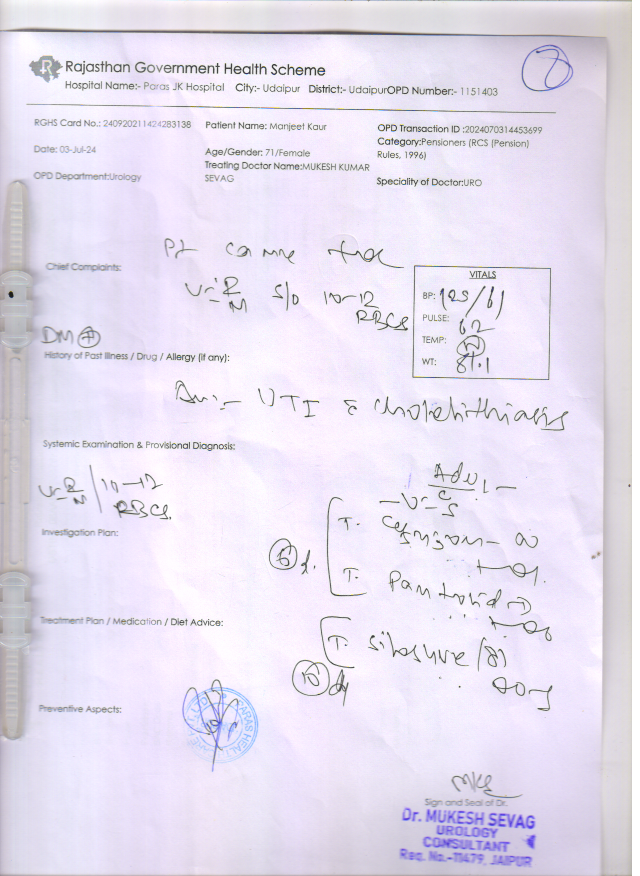 Rajasthan Government Health Scheme
Hospital Name:- Paras JK Hospital City:- Udaipur District:- UdaipurOPD Number:- 1151403
RGHS Card No.: 240920211424283138 Patient Name: Manjeet Kaur OPD Transaction ID :2024070314453699
Category:Pensioners (RCS (Pension) Rules, 1996)
Date: 03-Jul-24 Age/Gender: 71/Female
Treating Doctor Name:MUKESH KUMAR SEVAG
OPD Department:Urology Speciality of Doctor:URO
Pt came
Chief Complaints:
R/M S/O 10-12 RBCs
VITALS
BP: 125/61
PULSE: 62
TEMP:
WT: 81.1
DM +
History of Past Illness / Drug / Allergy (if any):
UTI & cholelithiasis
Systemic Examination & Provisional Diagnosis:
R/M / 10-12 RBCs
Adv:-
C/S
T.
Investigation Plan:
5 d.
T. Pantocid
Treatment Plan / Medication / Diet Advice:
T. Silosure (8)
Preventive Aspects:
Sign and Seal of Dr.
Dr. MUKESH SEVAG
UROLOGY
CONSULTANT
Reg. No.-11479, JAIPUR